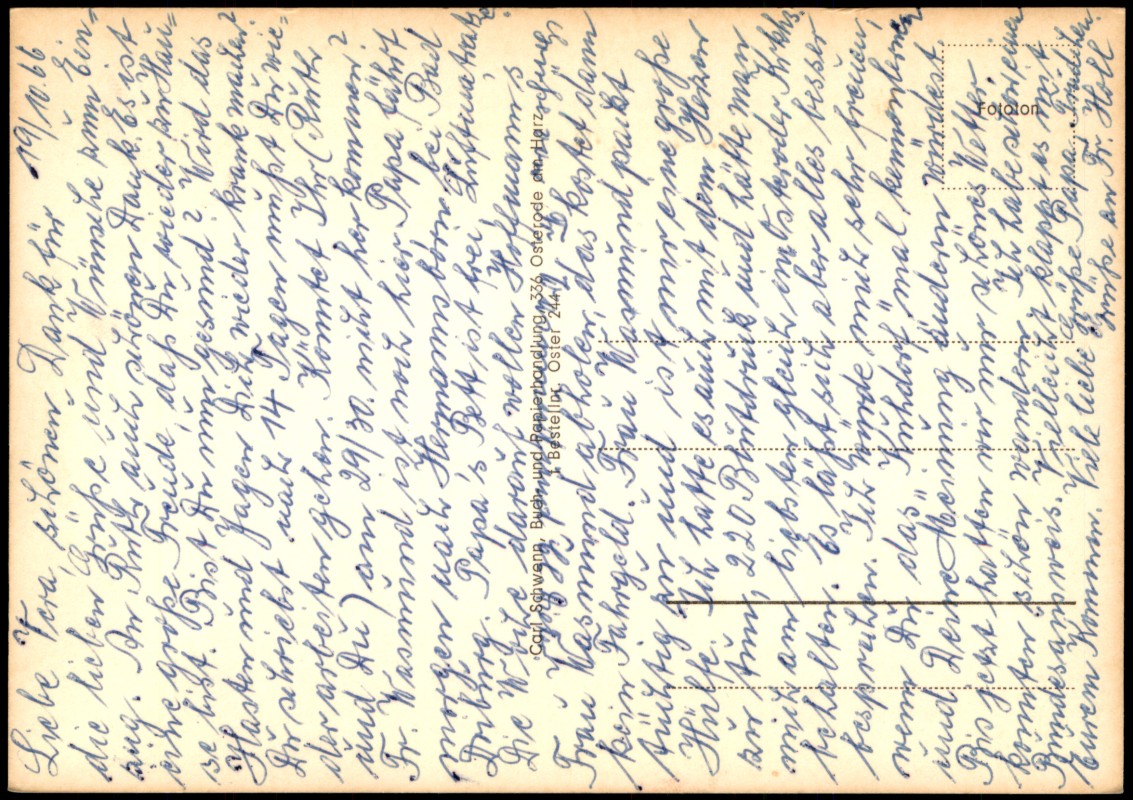 19/10.66
Liebe Vera, schönen Dank für
die lieben Grüße und Wünsche zum Ein=
zug. Der Ruth auch schönen Dank. Es ist
eine große Freude, daß Du wieder zu Hau=
se bist. Bist Du nun gesund? Wird das
Hasten und Jagen Dich wieder krank machen?
Du schriebst nach 14 Tagen mußt Du wie=
der arbeiten gehen. Könntet Ihr (Ruth
und Du) am 29/30. nicht herkommen?
Fr. Wasmund ist noch hier. Papa fährt
morgen nach Hermannsborn bei Bad
Driburg. Papa's Bett ist frei, Luftmatratze.
Die Woche darauf wollen Hofmann's
Frau Wasmund abholen, das kostet dann
kein Fahrgeld. Frau Wasmund packt
tüchtig an und ist mir eine große
Hülfe. Ich hatte es auch mit dem Herzen
zu tun, 220 Blutdruck und hätte man
mich am liebsten gleich im Osteroder Krkhs.
behalten. Es läßt sich aber alles besser
besprechen. Ich würde mich sehr freuen,
wenn Du das "Kuhdorf" mal kennenlernen
und Deine Meinung ändern würdest.
Bis jetzt hatten wir nur schönes Wetter
könnten schön wandern. Ich habe so einen
Bundesausweis. Vielleicht klappt es mit
Eurem Kommen. Viele liebe Grüße Papa
Grüße an Fr. Höll
Carl Schwenn, Buch- und Papierhandlung, 336 Osterode am Harz
Bestellnr. Oster 244
Fototon